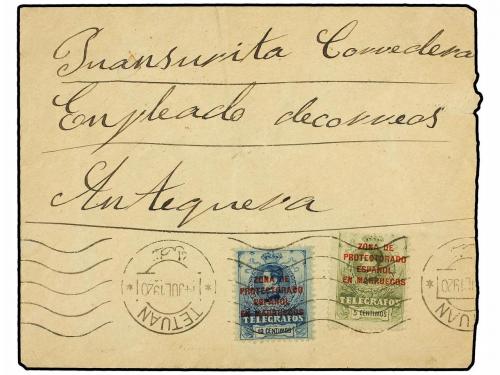 Juansurita Corredera
Enpleado decorreos
Antequera
JUL 1920
TETUAN
ZONA DE
PROTECTORADO
ESPAÑOL
EN MARRUECOS
TELEGRAFOS
10 CENTIMOS
ZONA DE
PROTECTORADO
ESPAÑOL
EN MARRUECOS
TELEGRAFOS
5 CENTIMOS
1920
TUAN